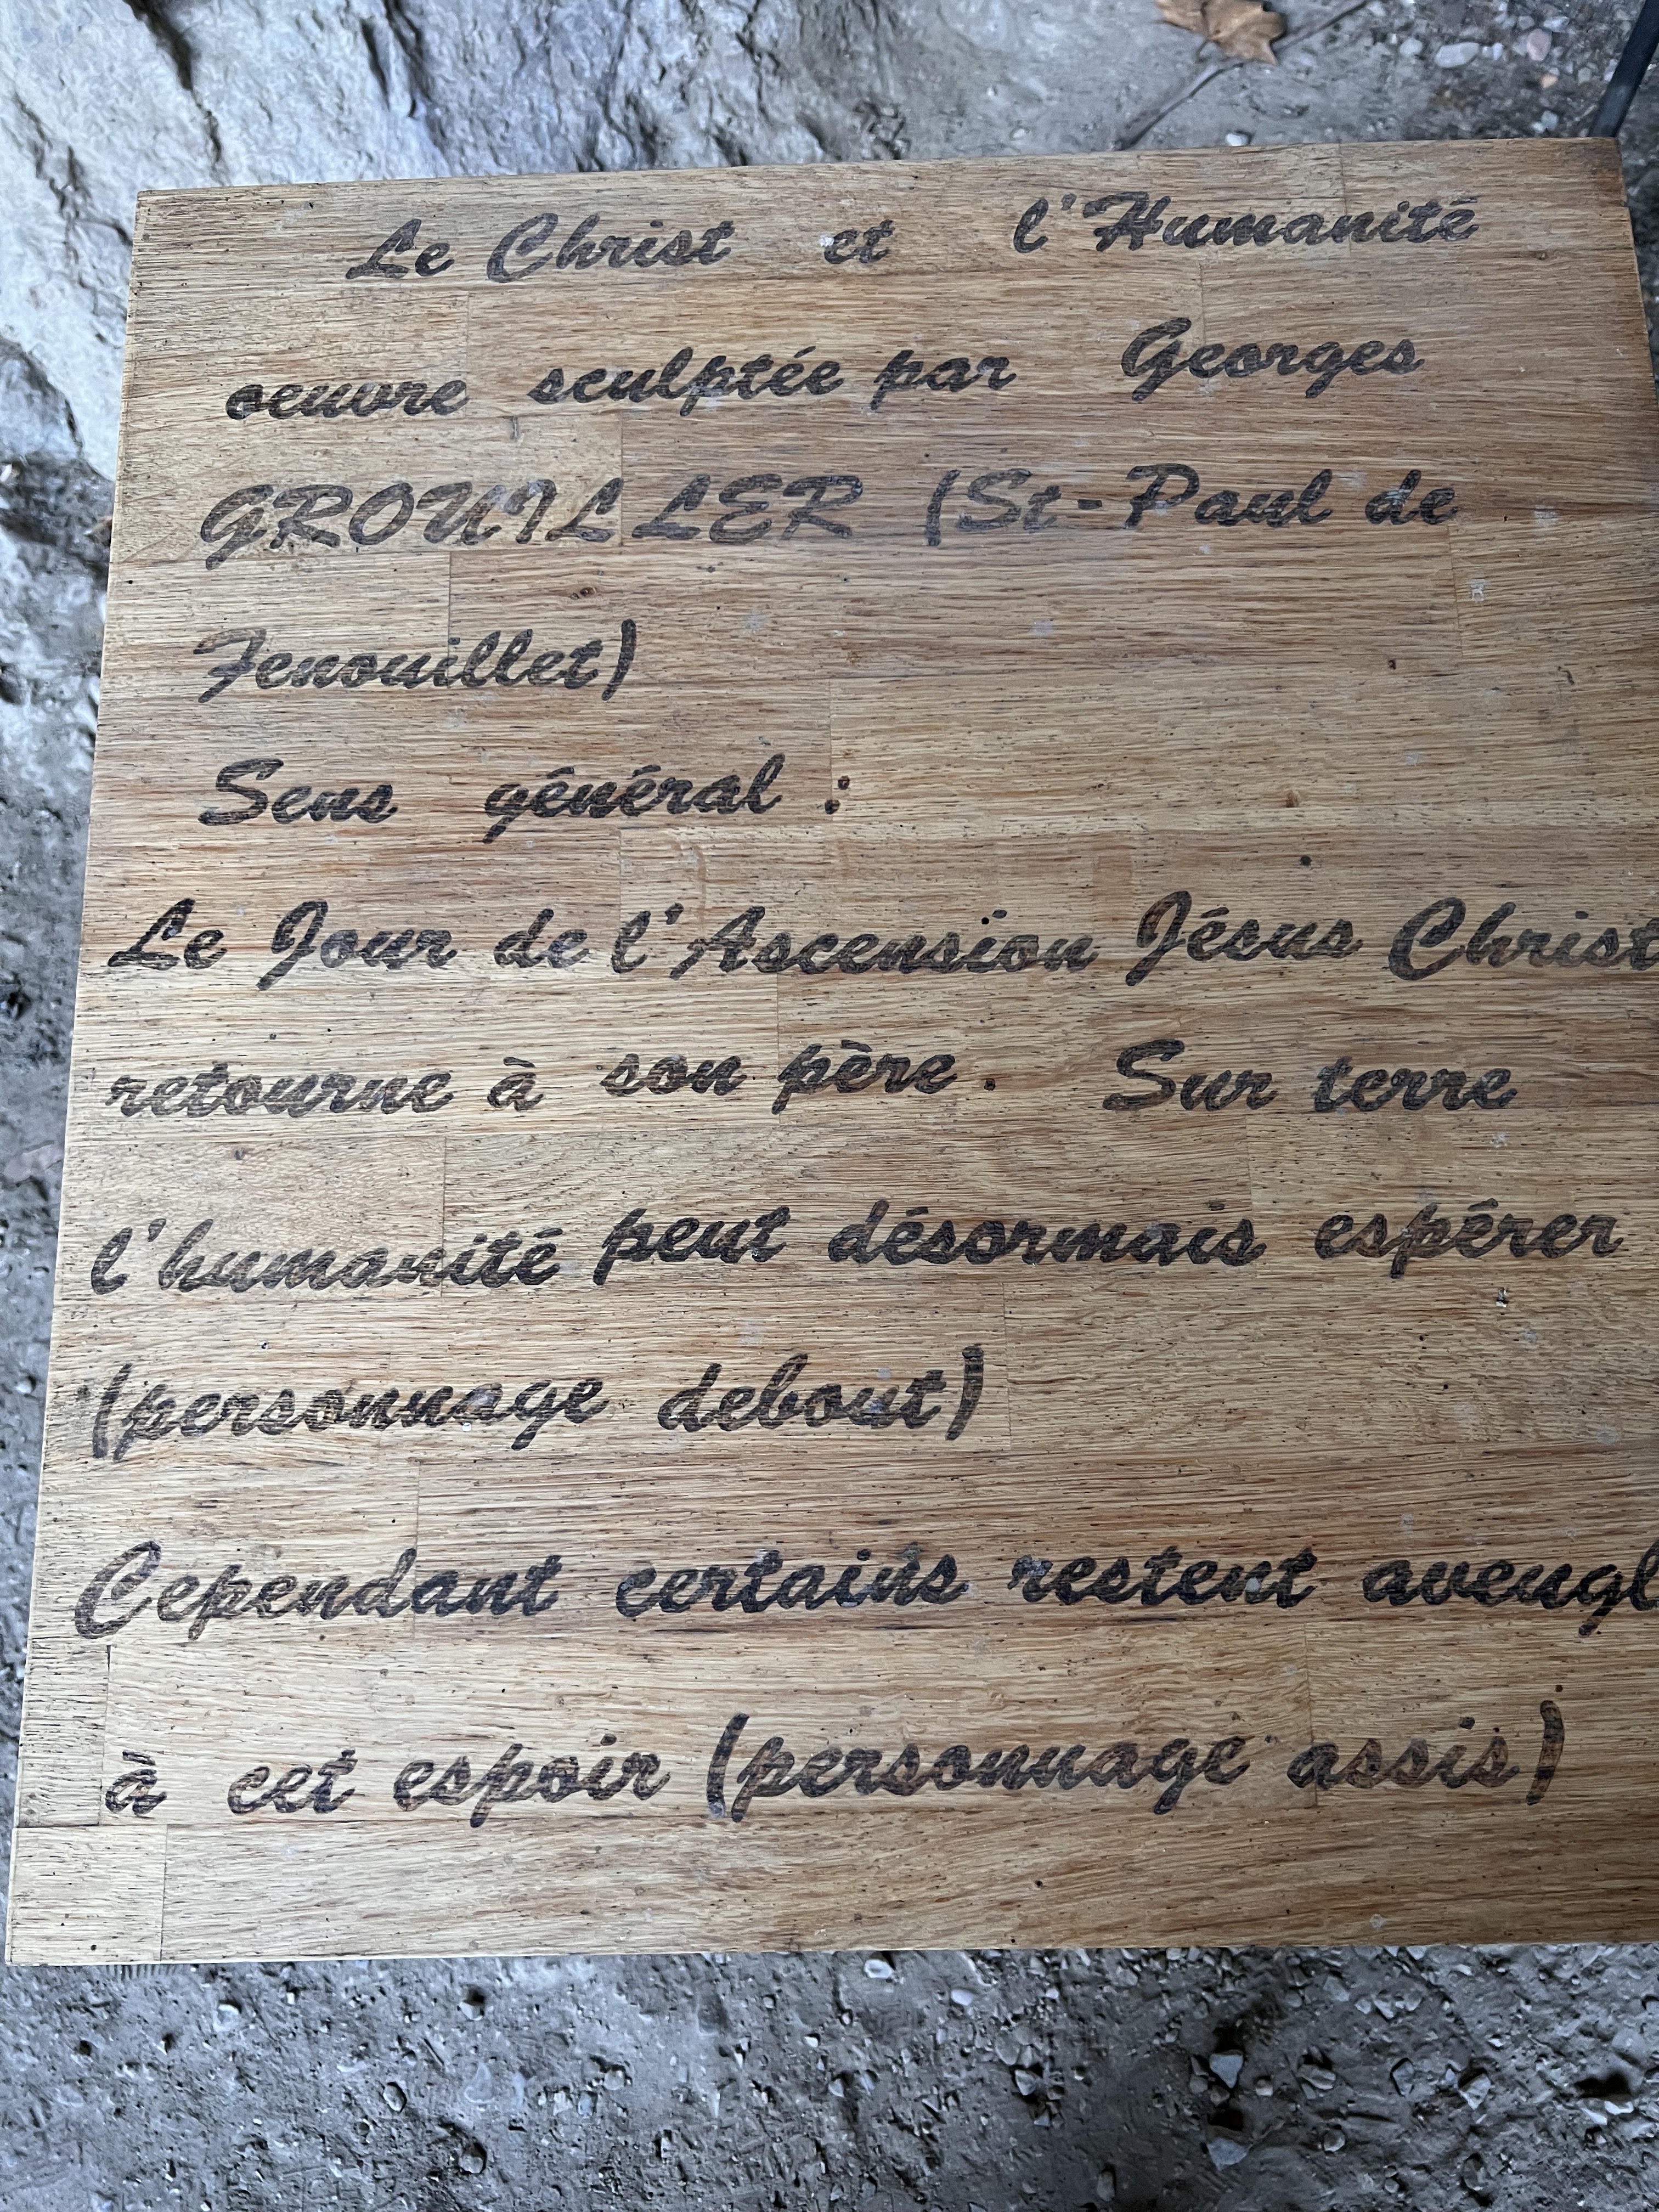 Le Christ et l'Humanité
oeuvre sculptée par Georges
GROUILLER (St-Paul de
Fenouillet)
Sens général :
Le Jour de l'Ascension Jésus Christ
retourne à son père. Sur terre
l'humanité peut désormais espérer
(personnage debout)
Cependant certains restent aveugl
à cet espoir (personnage assis)